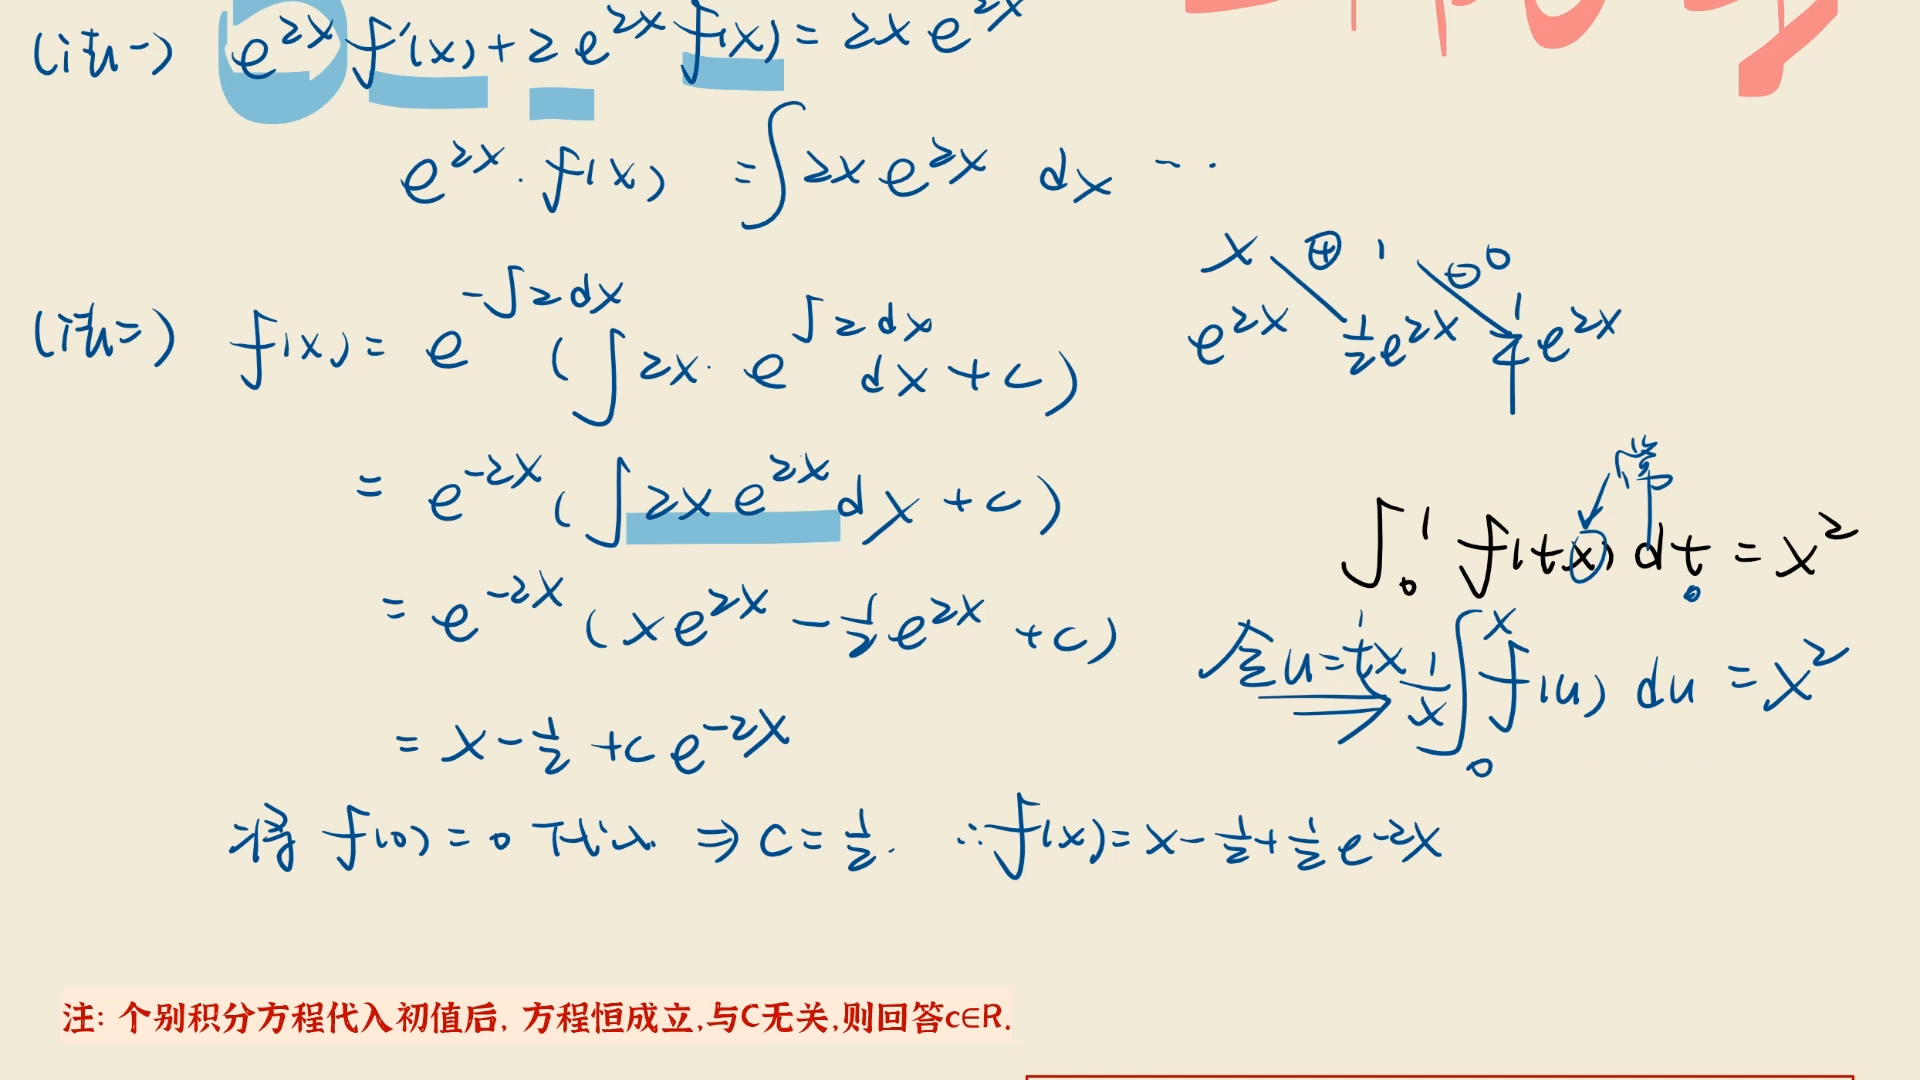 (法一) e^{2x} f'(x) + 2 e^{2x} f(x) = 2x e^{2x}
e^{2x} · f(x) = ∫ 2x e^{2x} dx ···
(法二) f(x) = e^{-∫2dx} (∫ 2x · e^{∫2dx} dx + c)
= e^{-2x} (∫ 2x e^{2x} dx + c)
= e^{-2x} (x e^{2x} - 1/2 e^{2x} + c)
= x - 1/2 + c e^{-2x}
将 f(0) = 0 代入 ⇒ C = 1/2. ∴ f(x) = x - 1/2 + 1/2 e^{-2x}
x ⊕ 1 ⊖ 0
e^{2x} 1/2 e^{2x} 1/4 e^{2x}
常
∫_0^1 f(tx) dt = x^2
令 u = tx ⇒ 1/x ∫_0^x f(u) du = x^2
注: 个别积分方程代入初值后, 方程恒成立,与C无关,则回答c∈R.